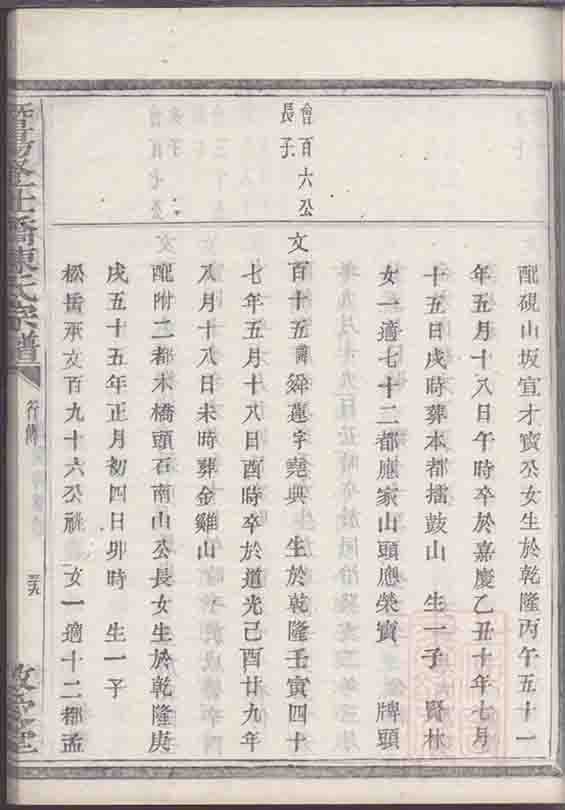 配硯山坂宜才寶公女生於乾隆丙午五十一
年五月十八日午時卒於嘉慶乙丑十年七月
十五日戌時葬本都擂鼓山 生一子 賢林
女一適七十二都應家山頭應榮寶 牌頭
會百六公
長子
文百十五諱舜蓮字堯典 生於乾隆壬寅四十
七年五月十八日酉時卒於道光己酉廿九年
八月十八日未時葬金雞山
配附二都木橋頭石南山公長女生於乾隆庚
戌五十五年正月初四日卯時 生一子
松岳承文百九十六公祧 女一適十二都孟
橋陳氏宗譜
行傳